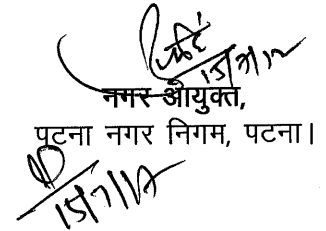 15/7/17
नगर आयुक्त,
पटना नगर निगम, पटना।
15/7/17